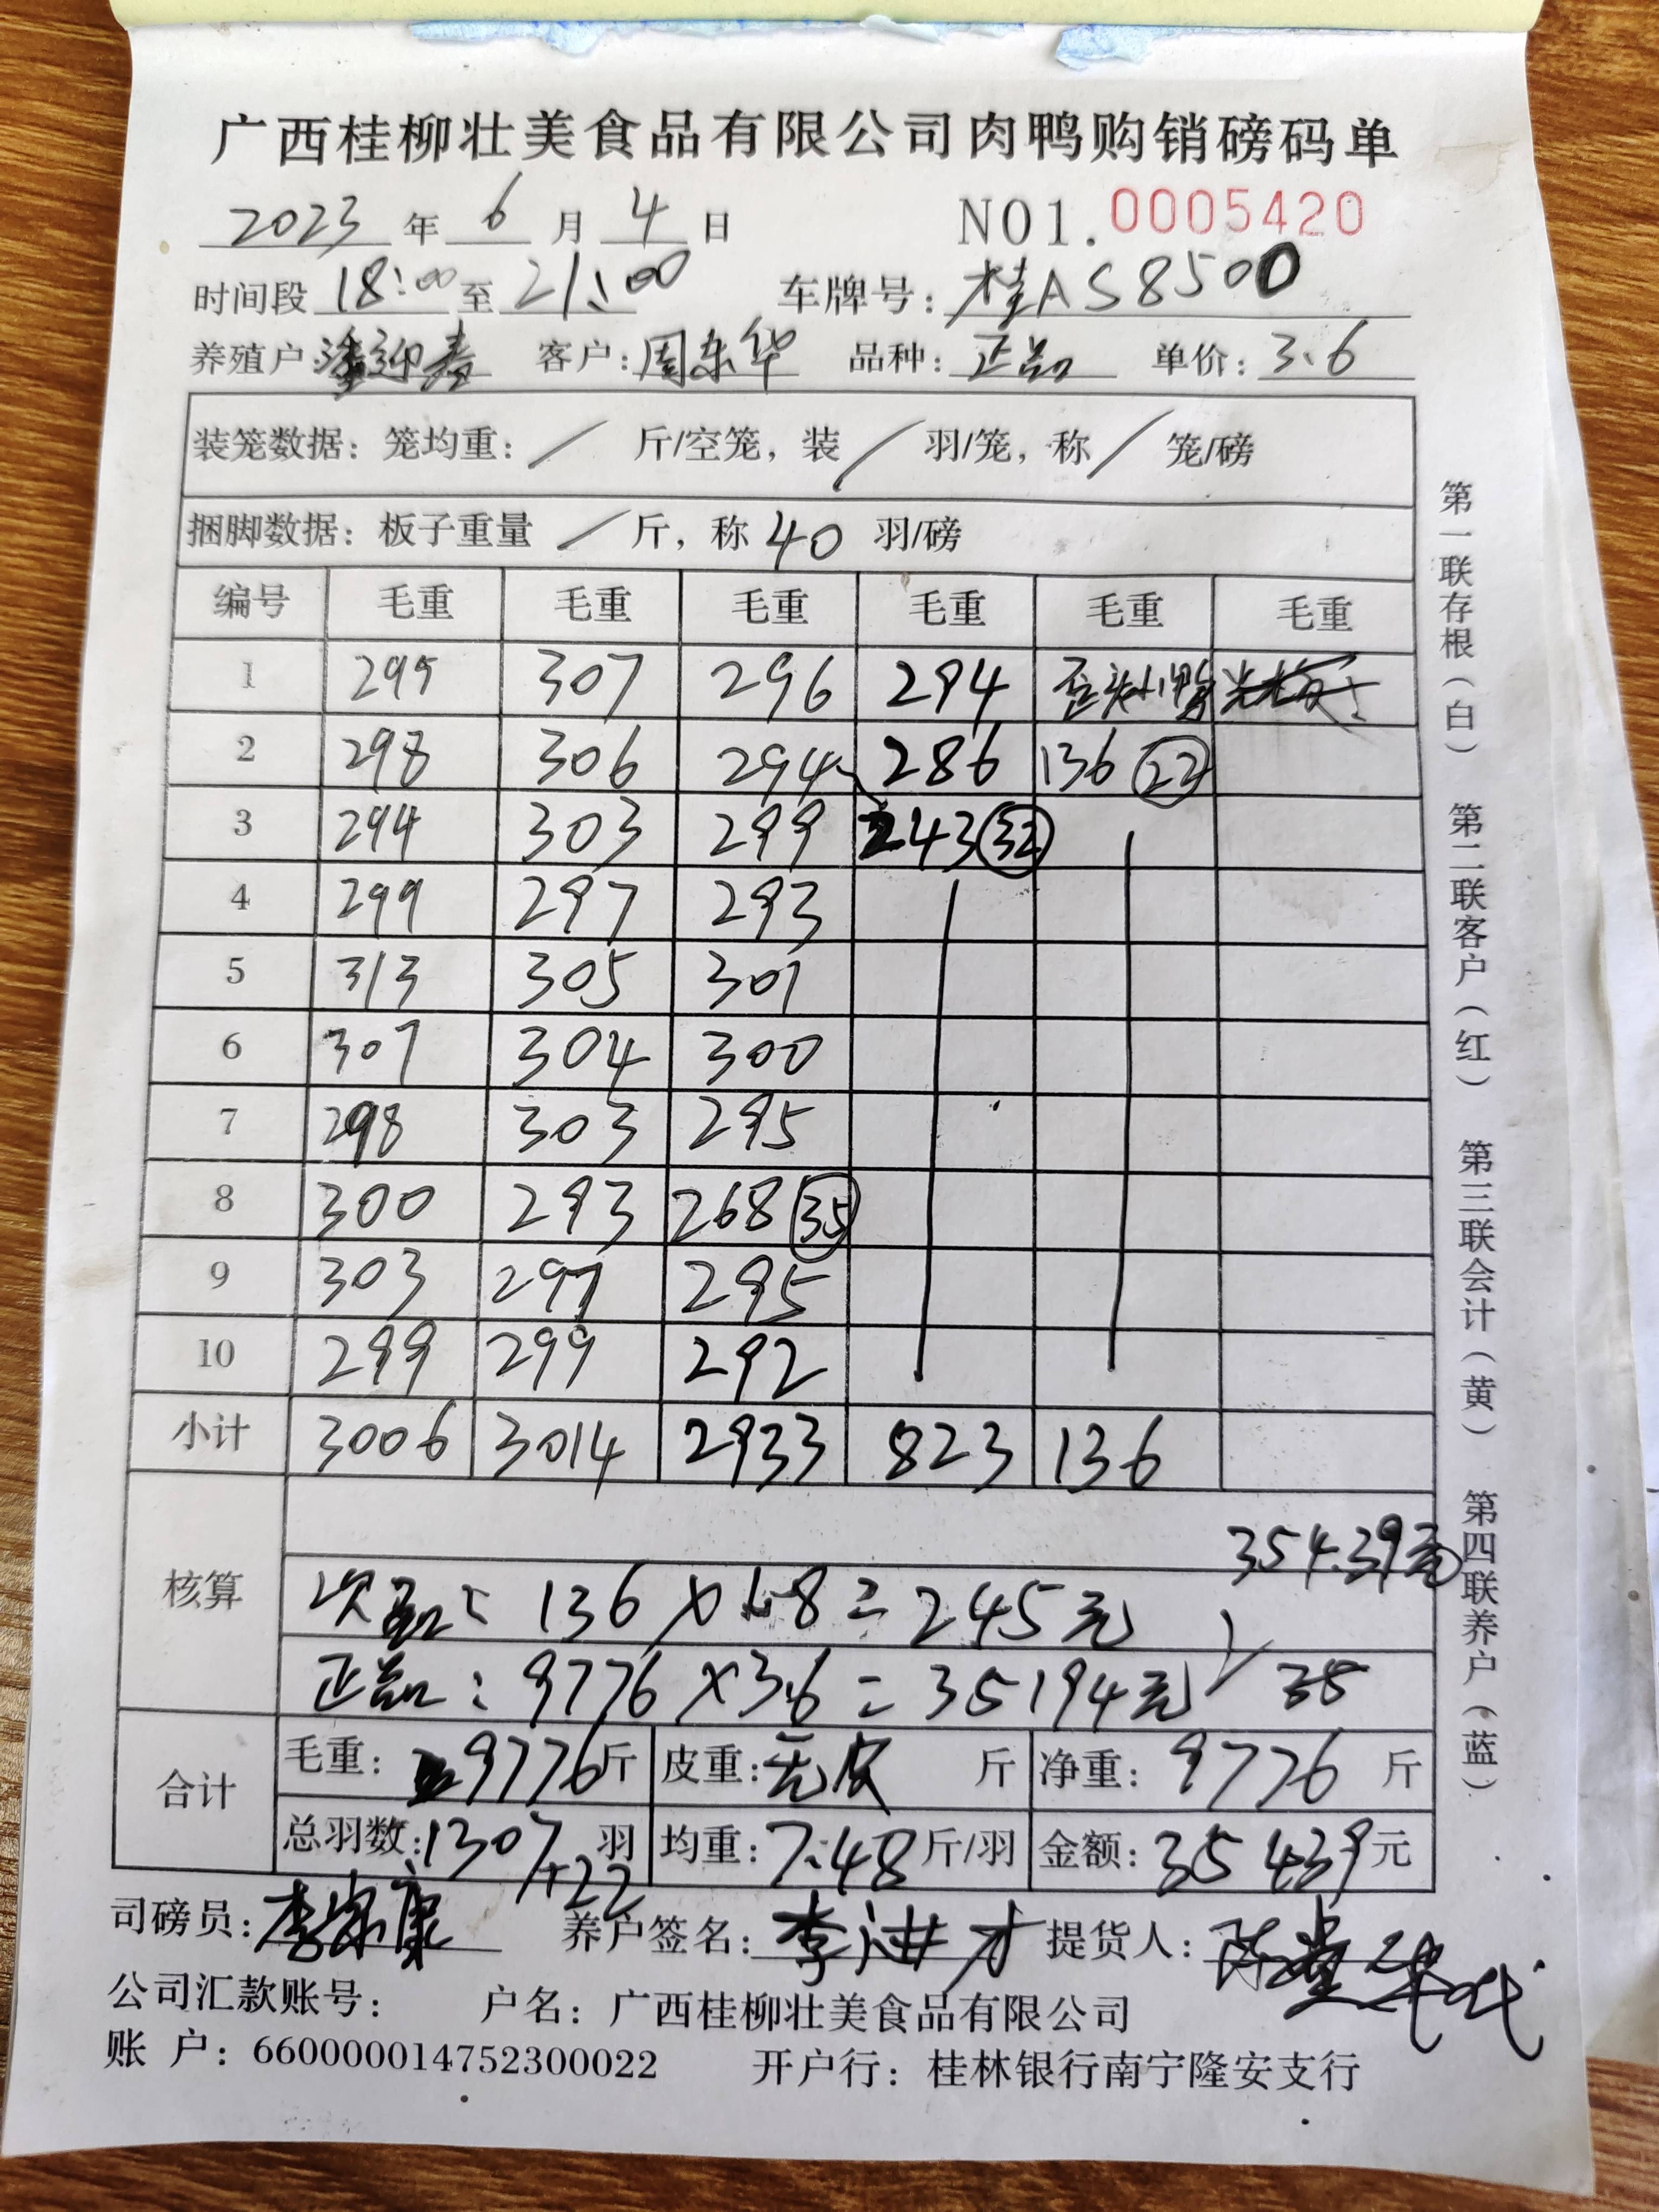 广西桂柳壮美食品有限公司肉鸭购销磅码单
2023 年 6 月 4 日 NO1. 0005420
时间段 18:00 至 21:00 车牌号: 桂AS8500
养殖户: 潘迎春 客户: 周东华 品种: 正品 单价: 3.6
装笼数据: 笼均重: / 斤/空笼, 装 / 羽/笼, 称 / 笼/磅
捆脚数据: 板子重量 / 斤, 称 40 羽/磅
编号 毛重 毛重 毛重 毛重 毛重 毛重
1 295 307 296 294 歪头小鸭
2 298 306 294 286 136 22
3 294 303 299 243 32
4 299 297 293
5 313 305 301
6 307 304 300
7 298 303 295
8 300 293 268 35
9 303 297 295
10 299 299 292
小计 3006 3014 2933 823 136
核算
354.39
次品: 136 × 1.8 = 245元
正品: 9776 × 3.6 = 35194元
合计 毛重: 9776 斤 皮重: 无皮 斤 净重: 9776 斤
总羽数: 1307 羽 +22 均重: 7.48 斤/羽 金额: 35439 元
司磅员: 李荣康 养户签名: 李进才 提货人:
公司汇款账号: 户名: 广西桂柳壮美食品有限公司
账 户: 660000014752300022 开户行: 桂林银行南宁隆安支行
第一联存根(白) 第二联客户(红) 第三联会计(黄) 第四联养户(蓝)